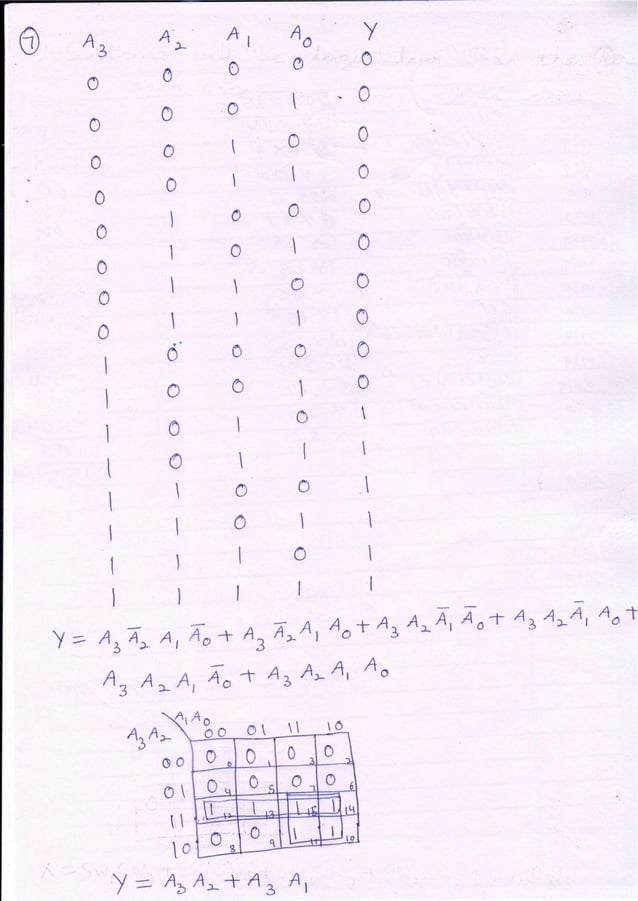 7 A₃ A₂ A₁ A₀ Y
0 0 0 0 0
0 0 0 1 0
0 0 1 0 0
0 0 1 1 0
0 1 0 0 0
0 1 0 1 0
0 1 1 0 0
0 1 1 1 0
1 0 0 0 0
1 0 0 1 0
1 0 1 0 1
1 0 1 1 1
1 1 0 0 1
1 1 0 1 1
1 1 1 0 1
1 1 1 1 1
Y = A₃ Ā₂ A₁ Ā₀ + A₃ Ā₂ A₁ A₀ + A₃ A₂ Ā₁ Ā₀ + A₃ A₂ Ā₁ A₀ +
A₃ A₂ A₁ Ā₀ + A₃ A₂ A₁ A₀
A₁ A₀
A₃ A₂ 00 01 11 10
00 0₀ 0₁ 0₃ 0₂
01 0₄ 0₅ 0₇ 0₆
11 1₁₂ 1₁₃ 1₁₅ 1₁₄
10 0₈ 0₉ 1₁₁ 1₁₀
Y = A₃ A₂ + A₃ A₁